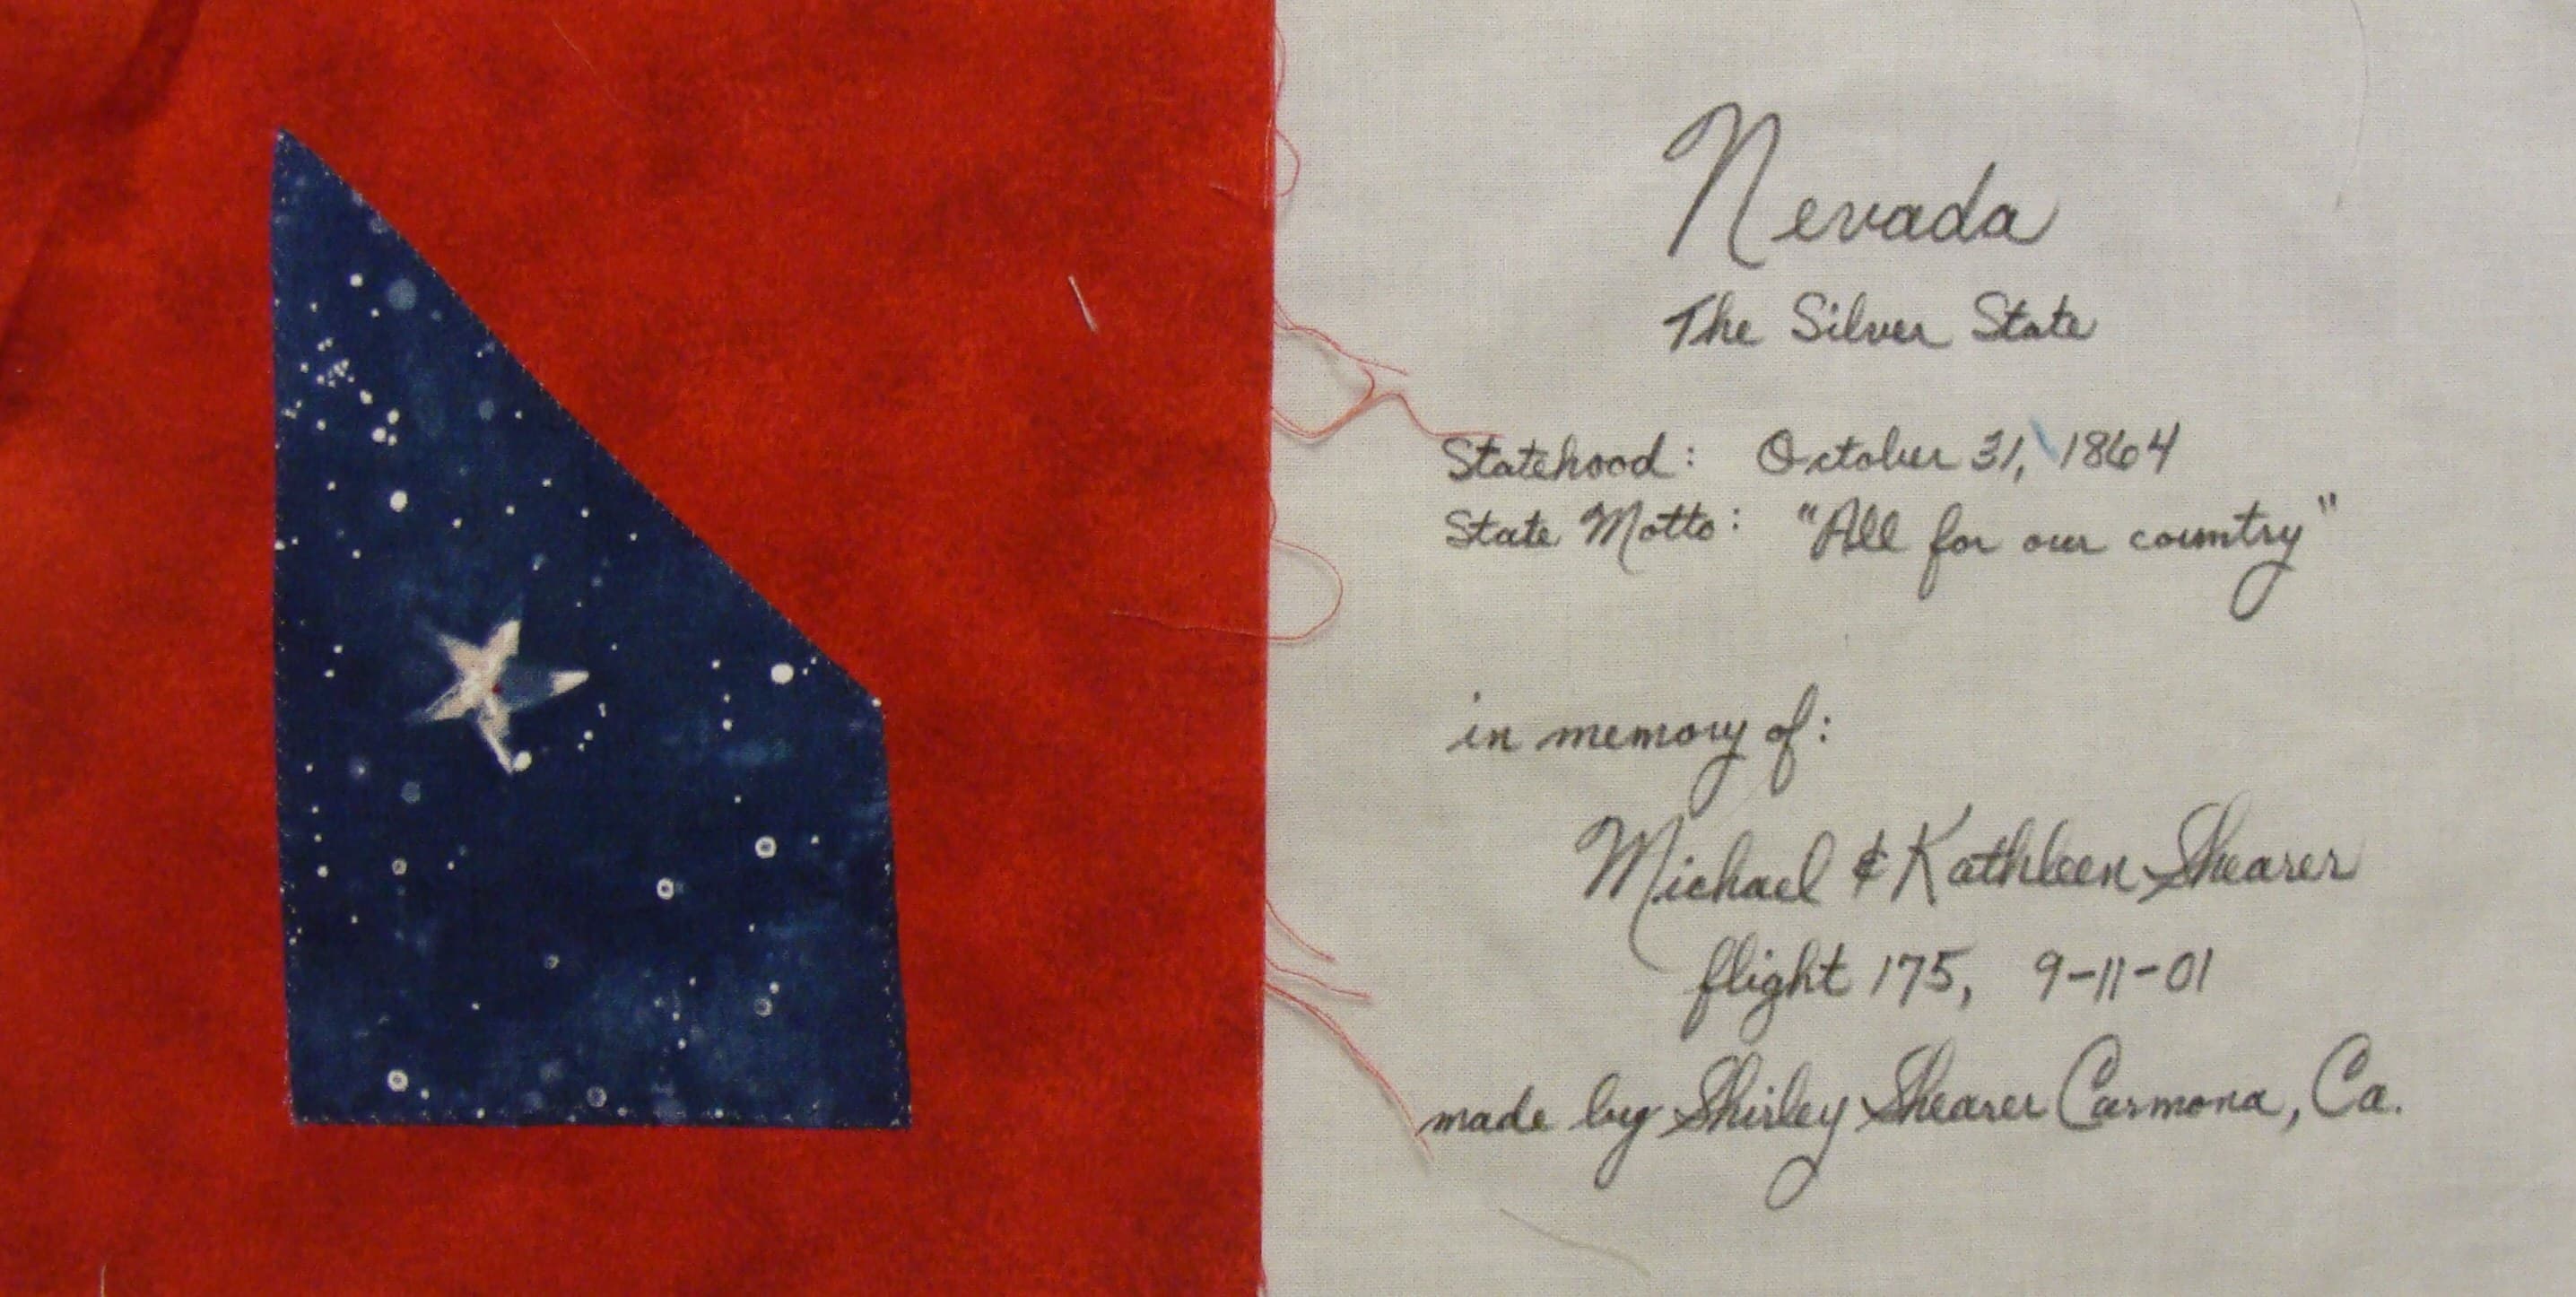 Nevada
The Silver State
Statehood: October 31, 1864
State Motto: "All for our country"
in memory of:
Michael & Kathleen Shearer
flight 175, 9-11-01
made by Shirley Shearer Carmona, Ca.